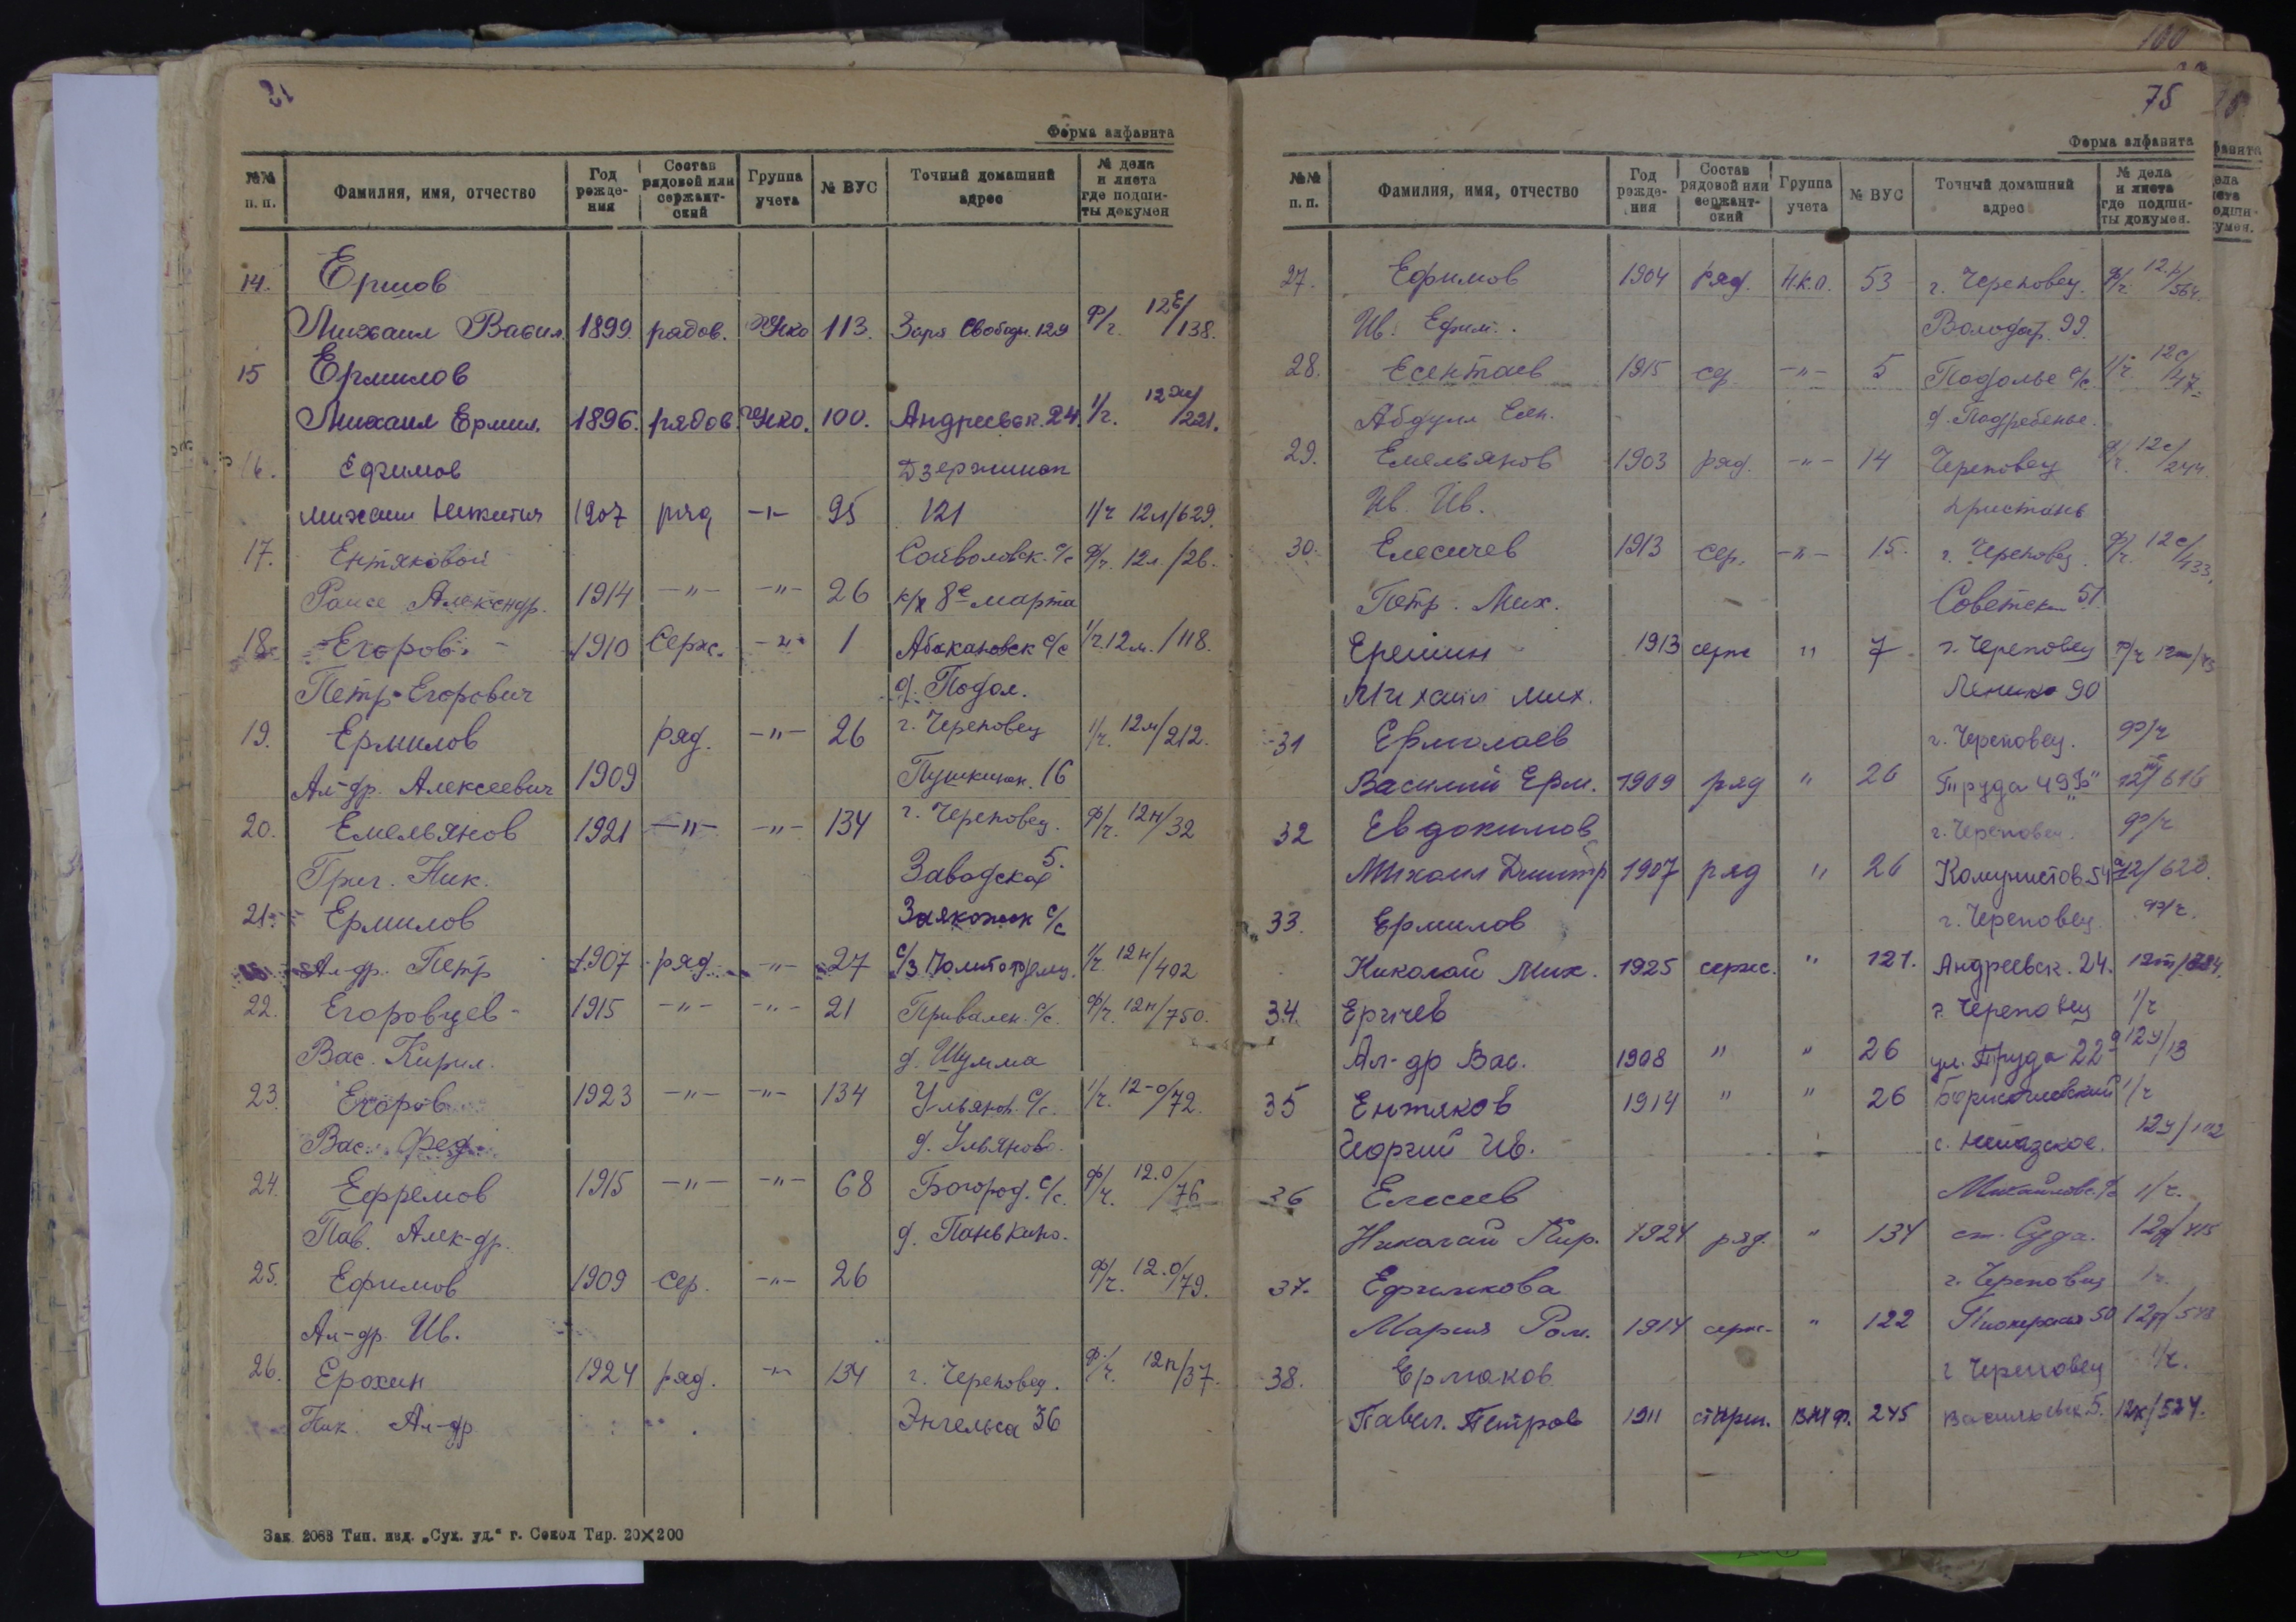 Форма алфавита
№№ п. п. Фамилия, имя, отчество Год рожде-ния Состав рядовой или сержант-ский Группа учета № ВУС Точный домашний адрес № дела и листа где подши-ты докумен
14. Ершов
Михаил Васил. 1899. рядов. Нко 113. Заря Свободы. 129 Ф/ч. 12Е/138.
15 Ермилов
Михаил Ермил. 1896. рядов. Нко. 100. Андреевск. 24. 1/ч. /221.
16. Ефимов Дзержинск
михаил Никитич 1907 ряд -"- 95 121 1/ч 12л/629.
17. Ентяковой Сойволовск. с/с Ф/ч. 12л./26.
Раисе Александр. 1914 -"- -"- 26 к/х 8е марта
18. Егоров 1910 Серж. -"- 1 Абакановск с/с 1/ч. 12м./118.
Петр Егорович д. Подол.
19. Ермилов ряд. -"- 26 г. Череповец 1/ч. 12м/212.
Ал-др. Алексеевич 1909 Пушкинск. 16
20. Емельянов 1921 -"- -"- 134 г. Череповец. Ф/ч. 12н/32
Григ. Ник. Заводская 5.
21. Ермилов с/с
Ал-др. Петр 1907 ряд. -"- 27 с/з 1/ч. 12н/402
22. Егоровцев - 1915 -"- -"- 21 Привален. с/с. Ф/ч. 12н/750.
Вас. Кирил. д. Шулма
23. Егоров 1923 -"- -"- 134 Ульянов. с/с. 1/ч. 12-о/72.
Вас. Фед. д. Ульяново.
24. Ефремов 1915 -"- -"- 68 Богород. с/с. Ф/ч. 12.о/76
Пав. Алек-др. д. Панькино.
25. Ефимов 1909 сер. -"- 26 Ф/ч. 12.о/79.
Ал-др. Ив.
26. Ерохин 1924 ряд. -"- 134 г. Череповец. Ф/ч. 12п/37.
Ник. Ал-др Энгельса 36
Зак. 2088 Тип. изд. „Сух. уд.“ г. Сокол Тир. 20×200
100
75
Форма алфавита
№№ п. п. Фамилия, имя, отчество Год рожде-ния Состав рядовой или сержант-ский Группа учета № ВУС Точный домашний адрес № дела и листа где подши-ты докумен.
27. Ефимов 1904 ряд. Н.к.о. 53 г. Череповец. Ф/ч. /564.
Ив. Ефим. Володар. 99.
28. Есентаев 1915 ср. -"- 5 Подолье с/с. 1/ч 12с/47.
Абдулл Есен. д. Подребенье.
29. Емельянов 1903 ряд. -"- 14 Череповец Ф/ч. 12с/244
Ив. Ив. пристань
30. Елесичев 1913 сер. -"- 15. г. Череповец. Ф/ч. 12с/433.
Петр. Мих. Советск 51.
Еремин 1913 серж " 7 г. Череповец Ф/ч
Михаил мих. Ленина 90
31 Ермолаев г. Череповец. Ф/ч
Василий Ерм. 1909 ряд " 26 Труда 49 „Б" 12т/616
32 Евдокимов г. Череповец. Ф/ч
Михаил Дмитр 1907 ряд " 26 Комунистов. 54 /623.
33. Ермилов г. Череповец. Ф/ч.
Николай Мих. 1925 серж. " 121. Андреевск. 24. 12т/
34. Еричев г. Череповец 1/ч
Ал-др Вас. 1908 " " 26 ул. Труда 22а 12у/13
35 Ентяков 1914 " " 26 Борисоглебский 1/ч
Георгий Ив. с. 12у/102
36 Елисеев Михайловс. 1/ч.
Николай Кир. 1924 ряд. " 134 ст. Суда. /415
37. Ефимкова г. Череповец 1/ч.
Мария Ром. 1914 серж. " 122 Пионерская 50
38. Ермаков г Череповец 1/ч.
Павел. Петров 1911 старш. 245 Васильевск 5. 12х/524.